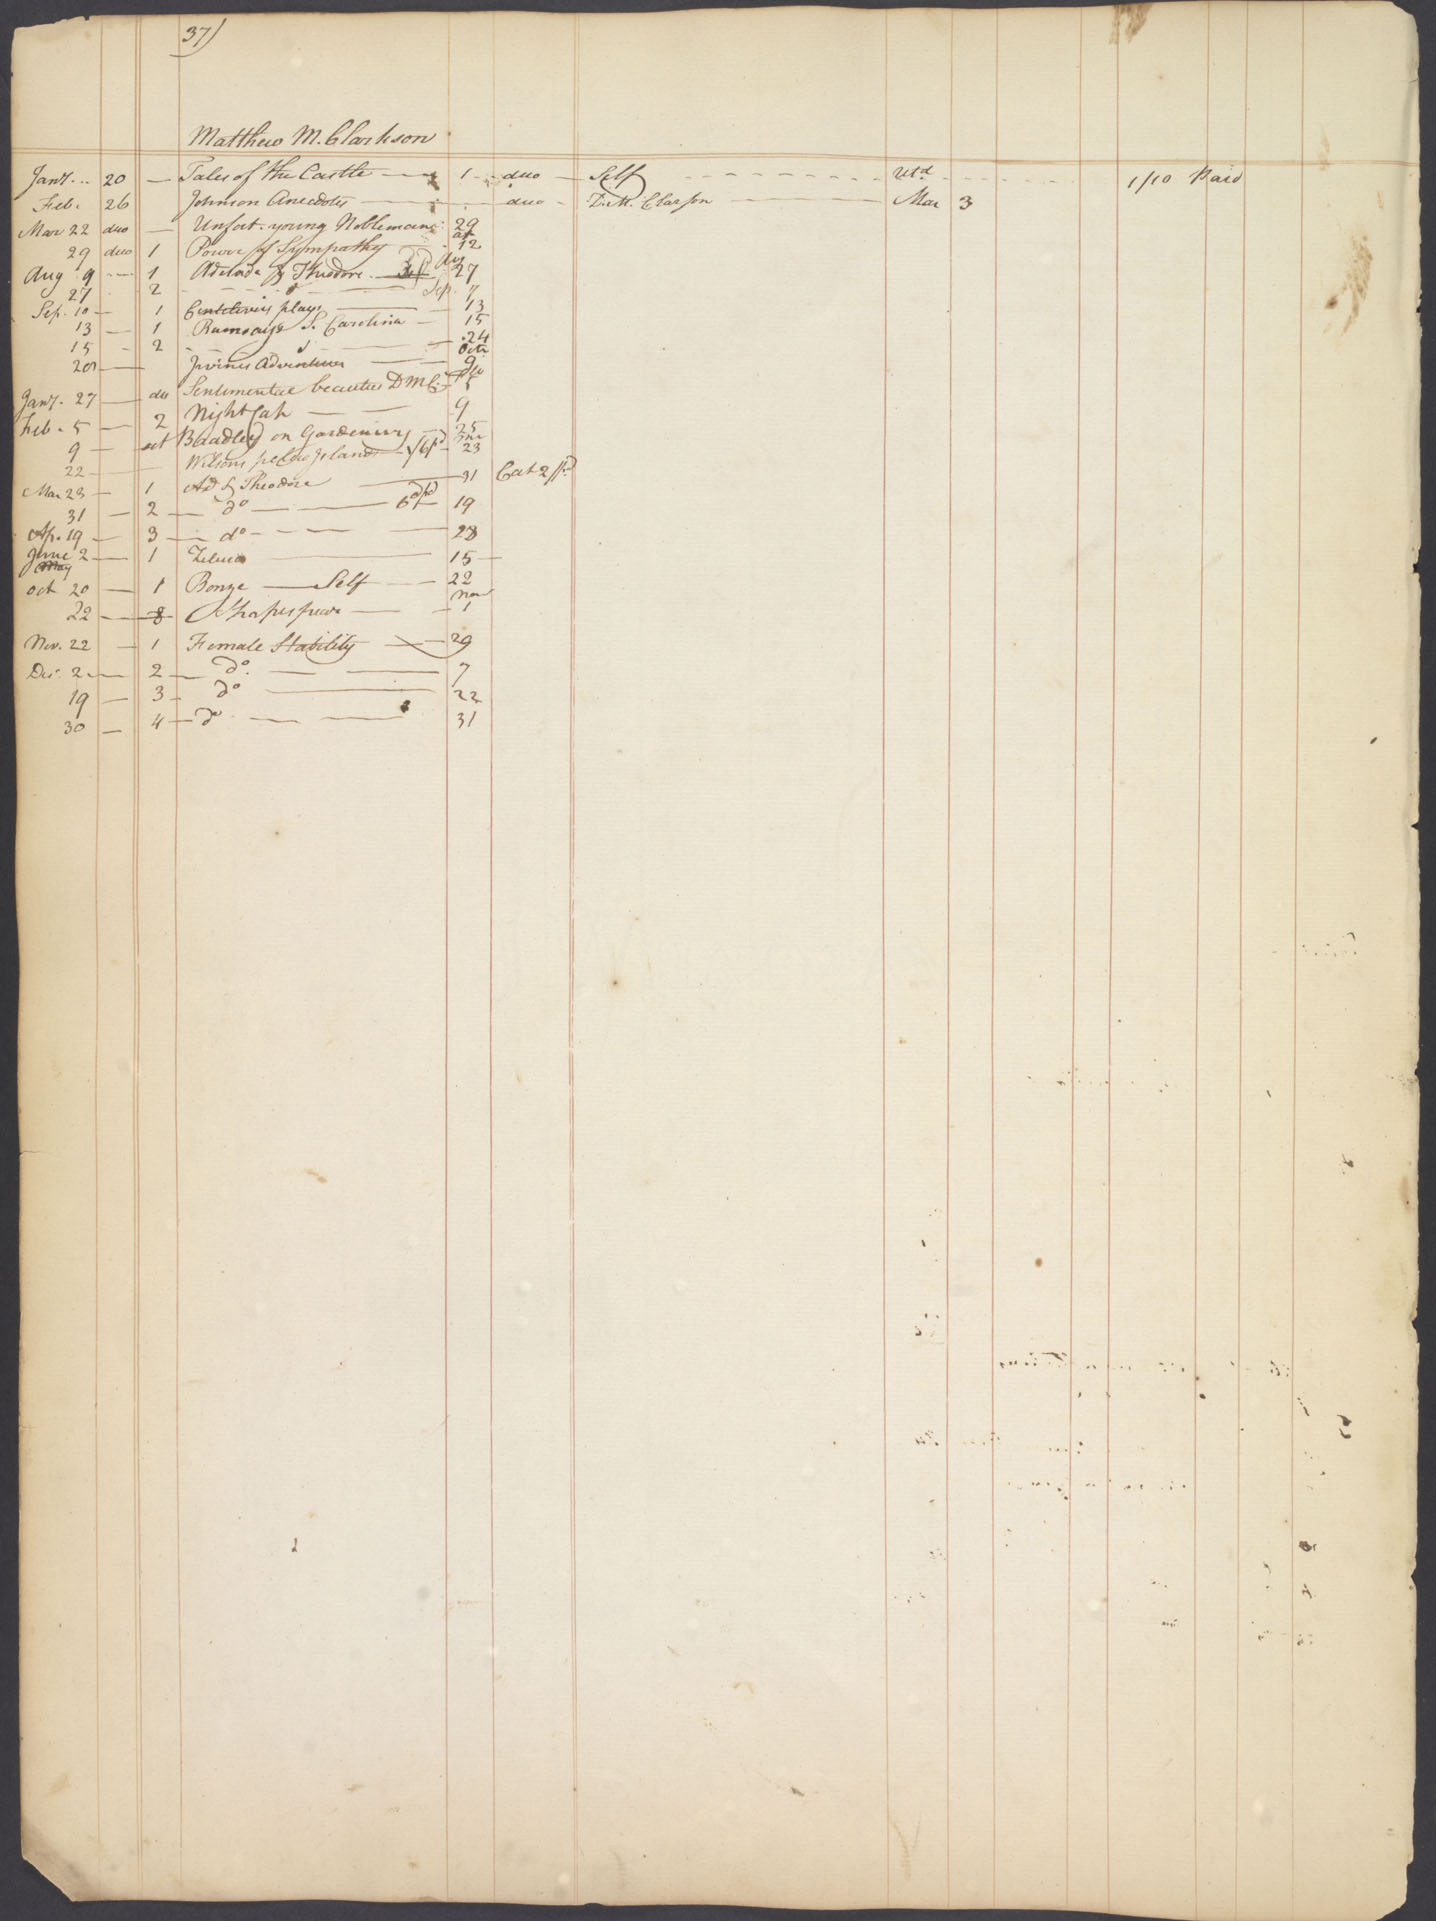 37)
Matthew M. Clarkson
Jany. .. 20 — Tales of the Castle — 1 duo — Self Retd 1/10 Paid
Feb. 26 Johnson Anecdotes — duo — D. M. Clarkson — Mar 3
Mar 22 duo — Unfort. young Nobleman 29
29 duo 1 Power of Sympathy — ap 12
Aug 9 — 1 Adelaide & Theodore — Aug 27
27 2 — Sep. 7
Sep. 10 — 1 Centlivres plays — 13
13 — 1 Ramsays S. Carolina — 15
15 — 2 — 24
20 — Irvines Adventures — Octr 9
Jany. 27 — duo Sentimental beauties D M C 5
Feb. 5 — 2 Night Cap — 9
9 — oct Bradley on Gardening — 25
22 — Wilsons pelew Islands — 23
Mar 23 — 1 Ad & Theodore — 31 Cat 2/ pd
31 — 2 — do — 6d pd 19
Ap. 19 — 3 — do — 28
June 2 — 1 Zeluco — 15 —
May
Oct 20 — 1 Bonze — Self — 22
22 — 8 Shakespeare — Nov 1
Nov. 22 — 1 Female Stability — 29
Dec. 2 — 2 — do. — 7
19 — 3 — do — 22
30 — 4 — do — 31